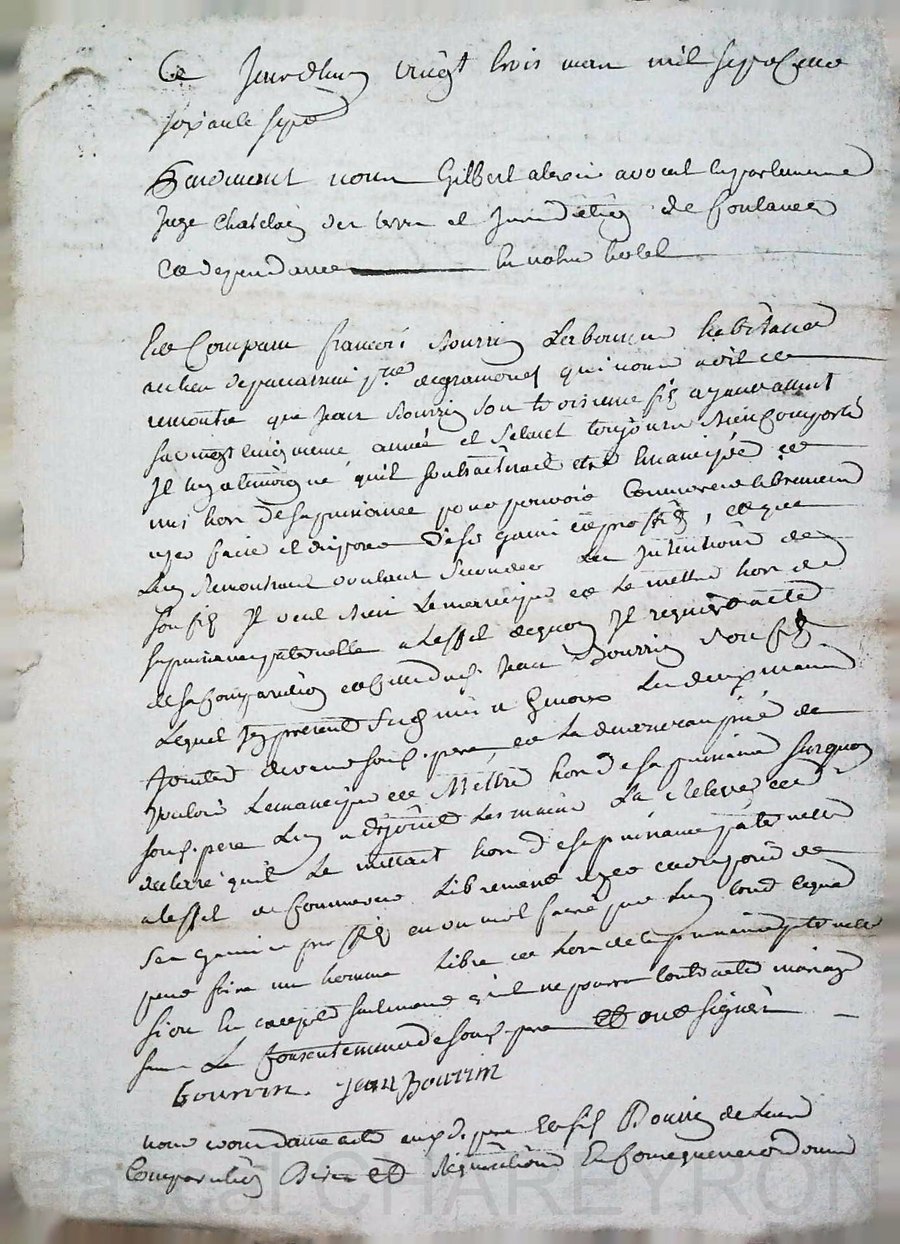 Ce Jourdhuy vingt trois mars mil sept Cent
soixante sept
Pardevant nous Gilbert avocat en parlement
Juge Chatelain des terre et Jurisdiction de
et dependances en notre hotel
Est Comparu francois Bourrin Laboureur habitant
au lieu de psse de qui nous a dit et
remontré que Jean Bourrin son troisieme fils ayant atteint
sa vingt cinquieme année et s'etant toujours bien Comporté
Il luy a temoigné qu'il souhaiteroit etre Emancipée et
mis hors de sa puissance pour pouvoir Commercer librement
user faire et disposer de ses gains et profits, et que
Luy Remontrant voulant seconder les Intentions de
son fils Il veut bien L'emanciper et Le mettre hors de
sa puissance paternelle a L'effet de quoy Il requiert acte
de sa Comparution et de celle dud. Jean Bourrin son fils
Lequel Icy present s'est mis a Genoux Les deux mains
Jointes devant sond. pere, et La de
vouloir L'emanciper et Mettre hors de sa puissance surquoy
sond. pere Luy a disjoint Les mains La Relevé et
declaré qu'il Le mettait hors de sa puissance paternelle
a l'effet de Commercer Librement user et disposer de
ses gains et profits en un mot faire par Luy tout ce que
peut faire un homme Libre et hors de la puissance paternelle
si on En excepte seulement qu'il ne pourra Contracter mariage
sans Le Consentement de sond. pere Et ont signés
Bourrin. Jean Bourrin
nous avons donné acte auxd. pere et fils Bourrin de Leurs
Comparution Dires et Requisitions En Consequence ordonné
Pascal CHAREYRON